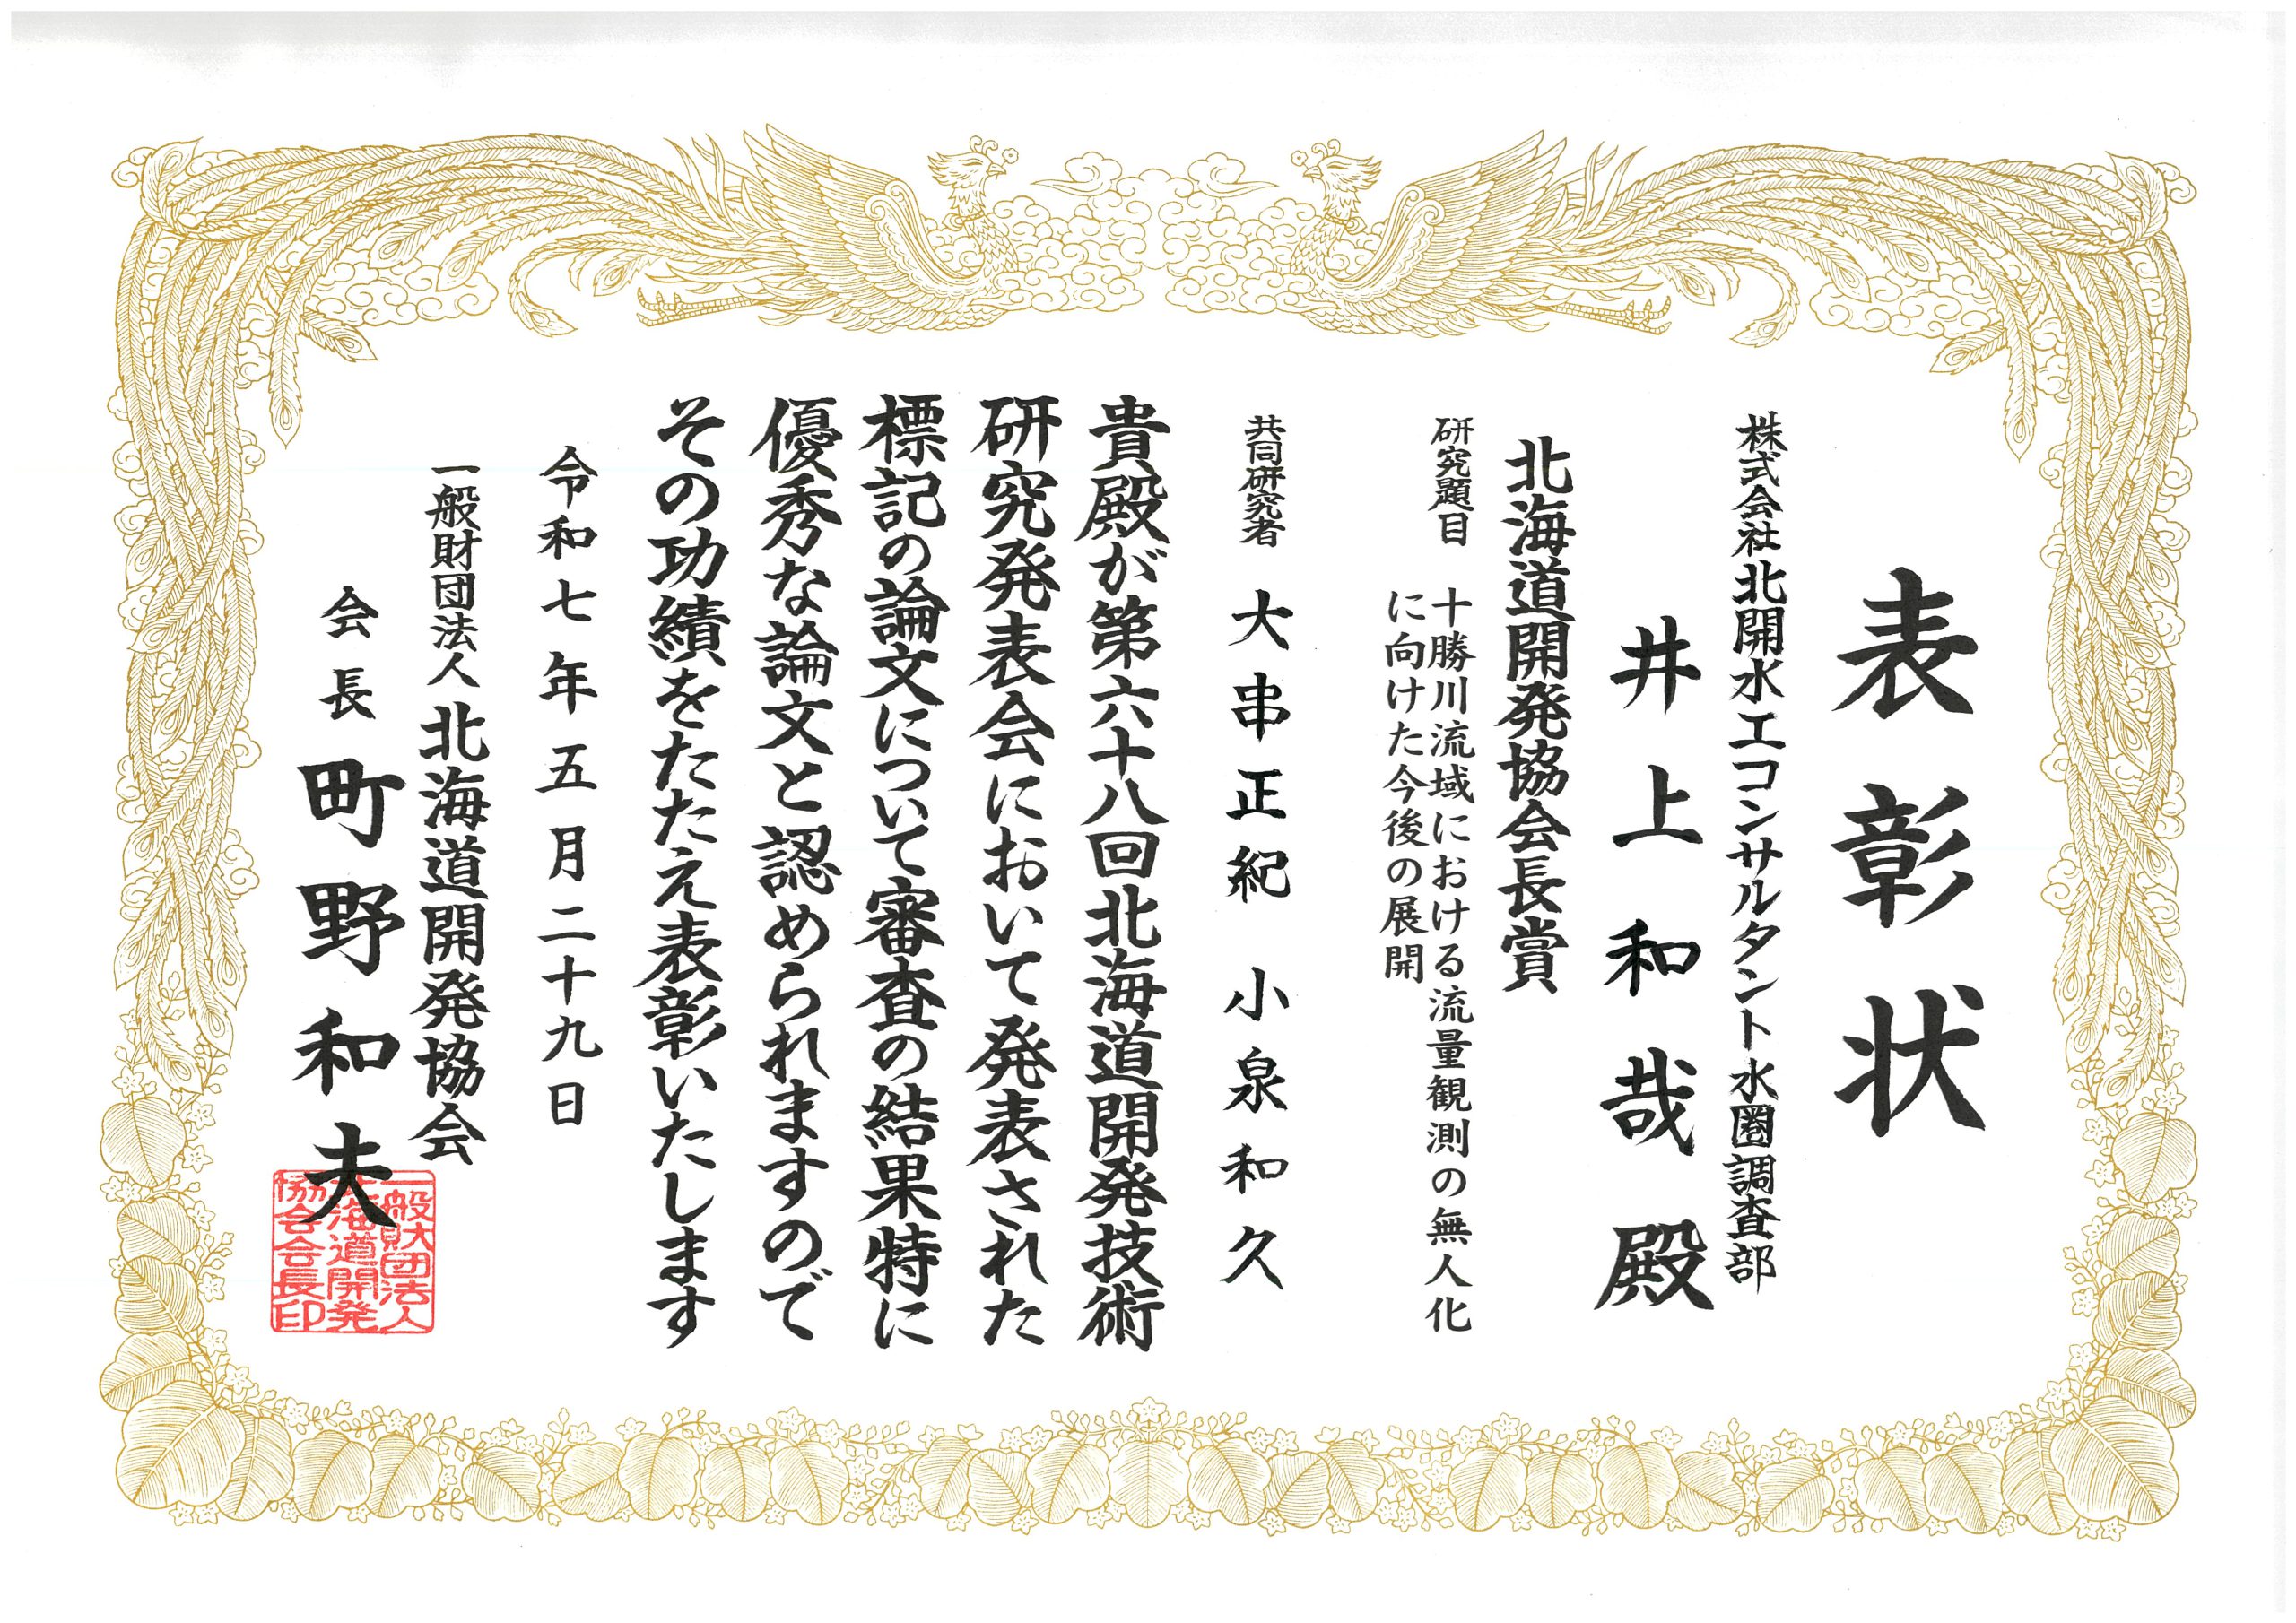 表彰状
株式会社北開水工コンサルタント水圏調査部
井上和哉殿
北海道開発協会長賞
研究題目 十勝川流域における流量観測の無人化
に向けた今後の展開
共同研究者 大串正紀 小泉和久
貴殿が第六十八回北海道開発技術
研究発表会において発表された
標記の論文について審査の結果特に
優秀な論文と認められますので
その功績をたたえ表彰いたします
令和七年五月二十九日
一般財団法人北海道開発協会
会長 町野和夫
一般財団法人
北海道開発
協会会長印